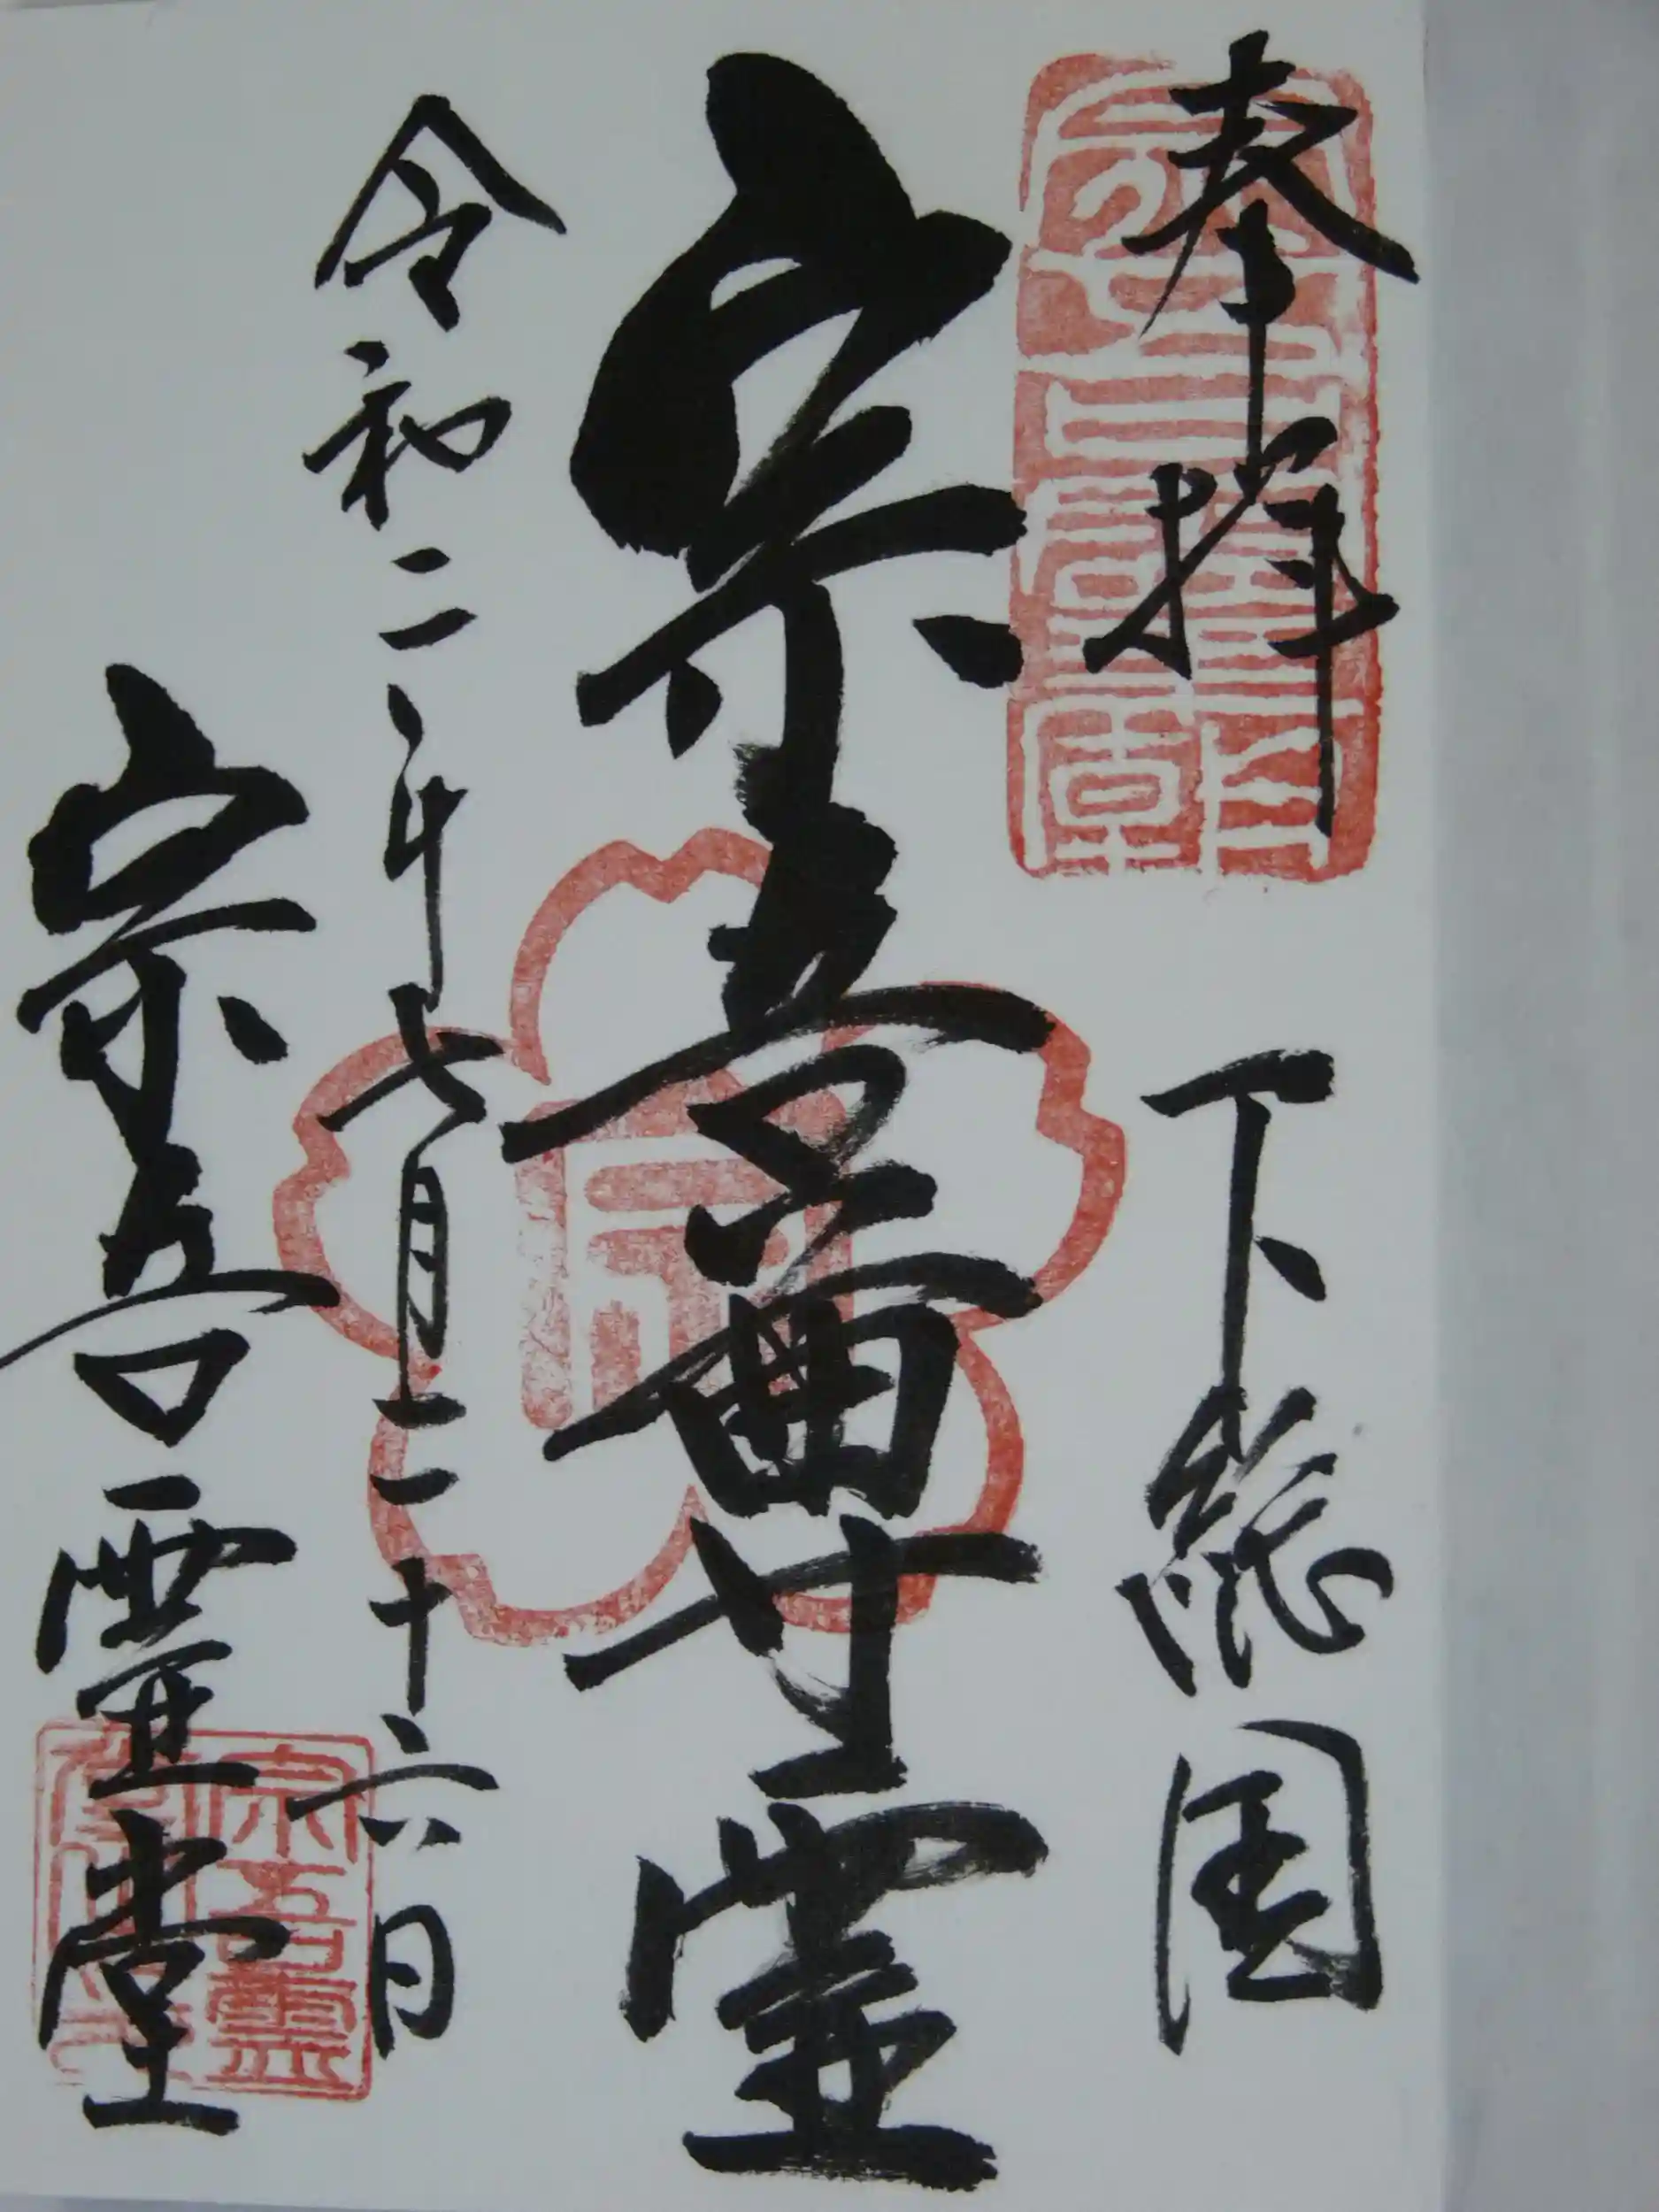 奉拝
下総国
宗吾尊霊
令和二年七月二十六日
宗吾霊堂